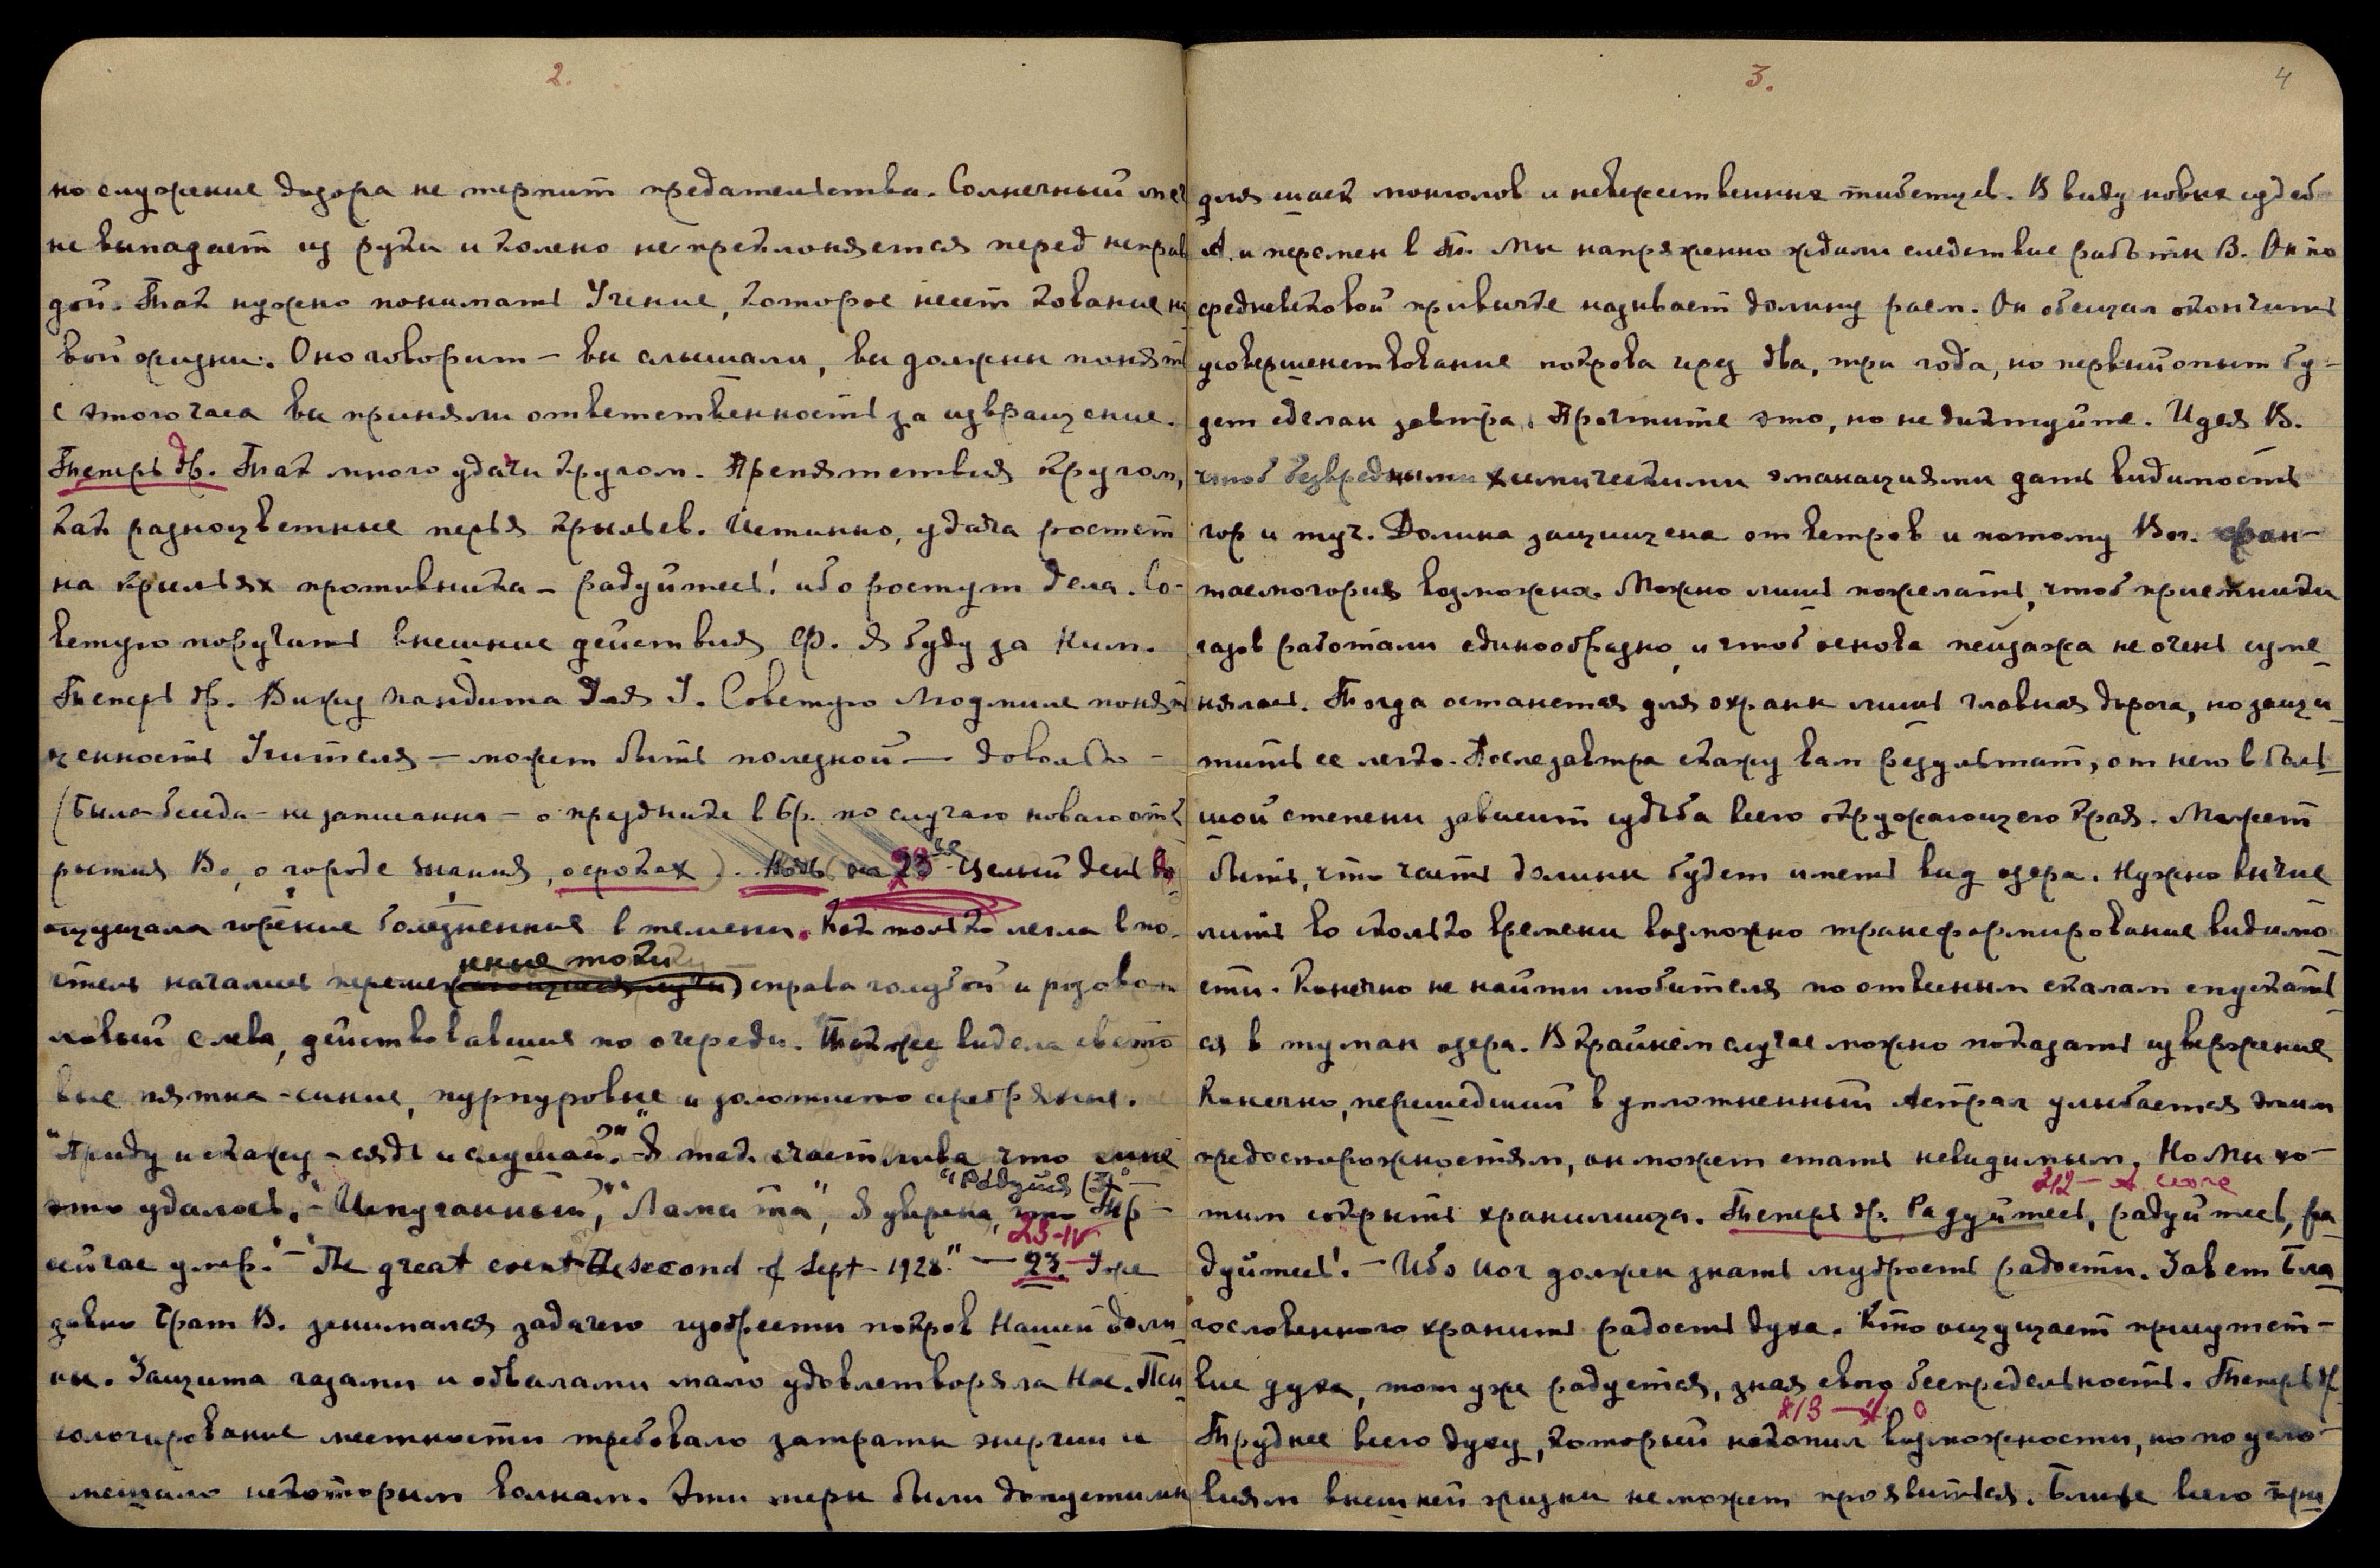 2.
но служение дозора не терпит предательства. Солнечный меч
не выпадает из руки и колено не преклоняется перед неправ
дой. Так нужно понимать Учение, которое несет кование но
вой жизни. Оно говорит – вы слышали, вы должны понять
с этого часа вы приняли ответственность за извращение.
Теперь др. Так много удачи кругом. Препятствия кругом,
как разноцветные перья крыльев. Истинно, удача ростет
на крыльях противника – радуйтесь! ибо ростут дела. Со-
ветую поручить внешние действия Ф. Я буду за Ним.
Теперь др. Вижу пандита для У. Советую Людмиле понять
ценность Учителя – может быть полезной – довольно –
(Была беседа – не записанная – о празднике в Бр. по случаю новаго отк
рытия В., о городе знания, о сроках). Ночь на 23ье Целый день
ощущала горение болезненные в темени. Как только легла в по-
стель начались переме нные токи справа голубой и розовый
лиловый слева, действовавшия по очереди. Также видела свето
вые пятна – синие, пурпуровые и золотисто серебряные.
"Приду и скажу – сядь и слушай." "Я так счастлива что мне
это удалось." – "Испуганный", "Лама та", "Радуйся (3)" – Я уверена, что Тр –
сейчас умер." – "The great event the second of Sept – 1928." – 23-IV 23. – Уже
давно Брат В. занимался задачею изобрести покров Нашей доли
ны. Защита газами и обвалами мало удовлетворяла Нас. Пси
хологирование местности требовало затраты энергии и
мешало некоторым волнам. Эти меры были допустимы
3.
4
для шаек монголов и невежественных тибетцев. В виду новых судеб
А. и перемен в Т. Мы напряженно ждали следствие работы В. Он по
средневековой привычке называет долину раем. Он обещал окончить
усовершенствование покрова чрез два, три года, но первый опыт бу-
дет сделан завтра. Прочтите это, но не диктуйте. Идея В.
чтоб безвредными химическими эманациями дать видимость
гор и туч. Долина защищена от ветров и потому Воз. фан-
тасмогория возможна. Можно лишь пожелать, чтоб приемники
газов работали единообразно, и чтоб основа пейзажа не очень изме
нялась. Тогда останется для охраны лишь главная дорога, но защи
тить ее легко. Послезавтра скажу вам результат, от него в боль
шой степени зависит судьба всего окружающего края. Может
быть, что часть долины будет иметь вид озера. Нужно вычис
лить во сколько времени возможно трансформирование видимо
сти. Конечно не найти любителя по отвесным скалам спускать
ся в туман озера. В крайнем случае можно показать извержение
Конечно, перешедший в уплотненный Астрал улыбается этим
предосторожностям, он может стать невидимым. Но Мы хо-
тим сокрыть хранилища. Теперь др. 212 – А. Радуйтесь, радуйтесь, ра
дуйтесь! – Ибо йог должен знать мудрость радости. Завет Бла
гословенного хранить радость духа. Кто ощущает присутст-
вие духа, тот уже радуется, зная свою беспредельность. Теперь др
213 – А.
Труднее всего духу, который накопил возможности, но по усло
виям внешней жизни не может проявиться. Ближе всего при